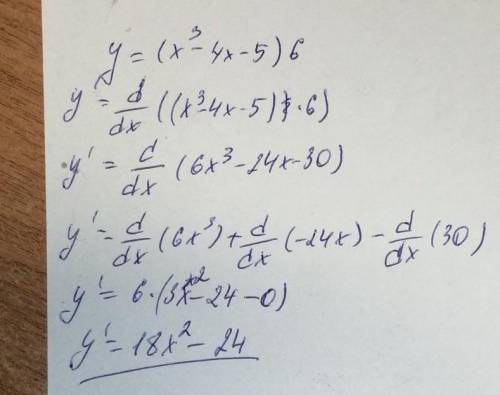 y = (x³ - 4x - 5) 6
y' = d/dx ((x³ - 4x - 5) · 6)
y' = d/dx (6x³ - 24x - 30)
y' = d/dx (6x³) + d/dx (-24x) - d/dx (30)
y' = 6 · (3x² - 24 - 0)
y' = 18x² - 24